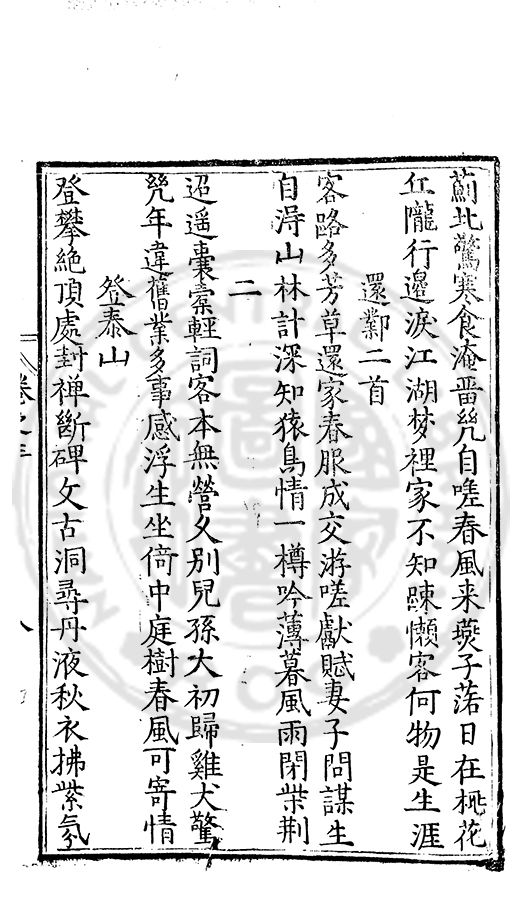 薊北驚寒食淹畱幾自嗟春風来燕子落日在桃花
丘隴行邊淚江湖梦裡家不知踈懶客何物是生涯
還鄴二首
客路多芳草還家春服成交游嗟獻賦妻子問謀生
自淂山林計深知猿鳥情一樽吟薄暮風雨閉柴荆
二
迢遥囊槖輕詞客本無營久别兒孫大初歸雞犬驚
幾年違舊業多事感浮生坐倚中庭樹春風可寄情
登泰山
登攀絶頂處封禅斷碑文古洞尋丹液秋衣拂紫氛
卷之三
八